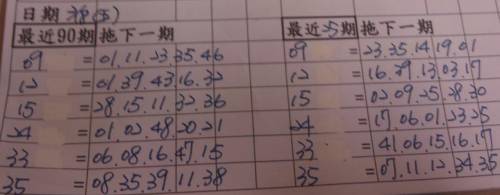 日期
最近90期 拖下一期 最近25期 拖下一期
09 =01.11.23.35.46 09 =23.35.14.19.01
12 =01.39.43.16.32 12 =16.29.13.03.17
15 =28.15.11.32.36 15 =02.09.25.28.30
24 =01.02.48.20.21 24 =17.06.01.23.25
33 =06.08.16.47.15 33 =41.06.15.16.17
35 =08.35.39.11.38 35 =07.11.12.34.35